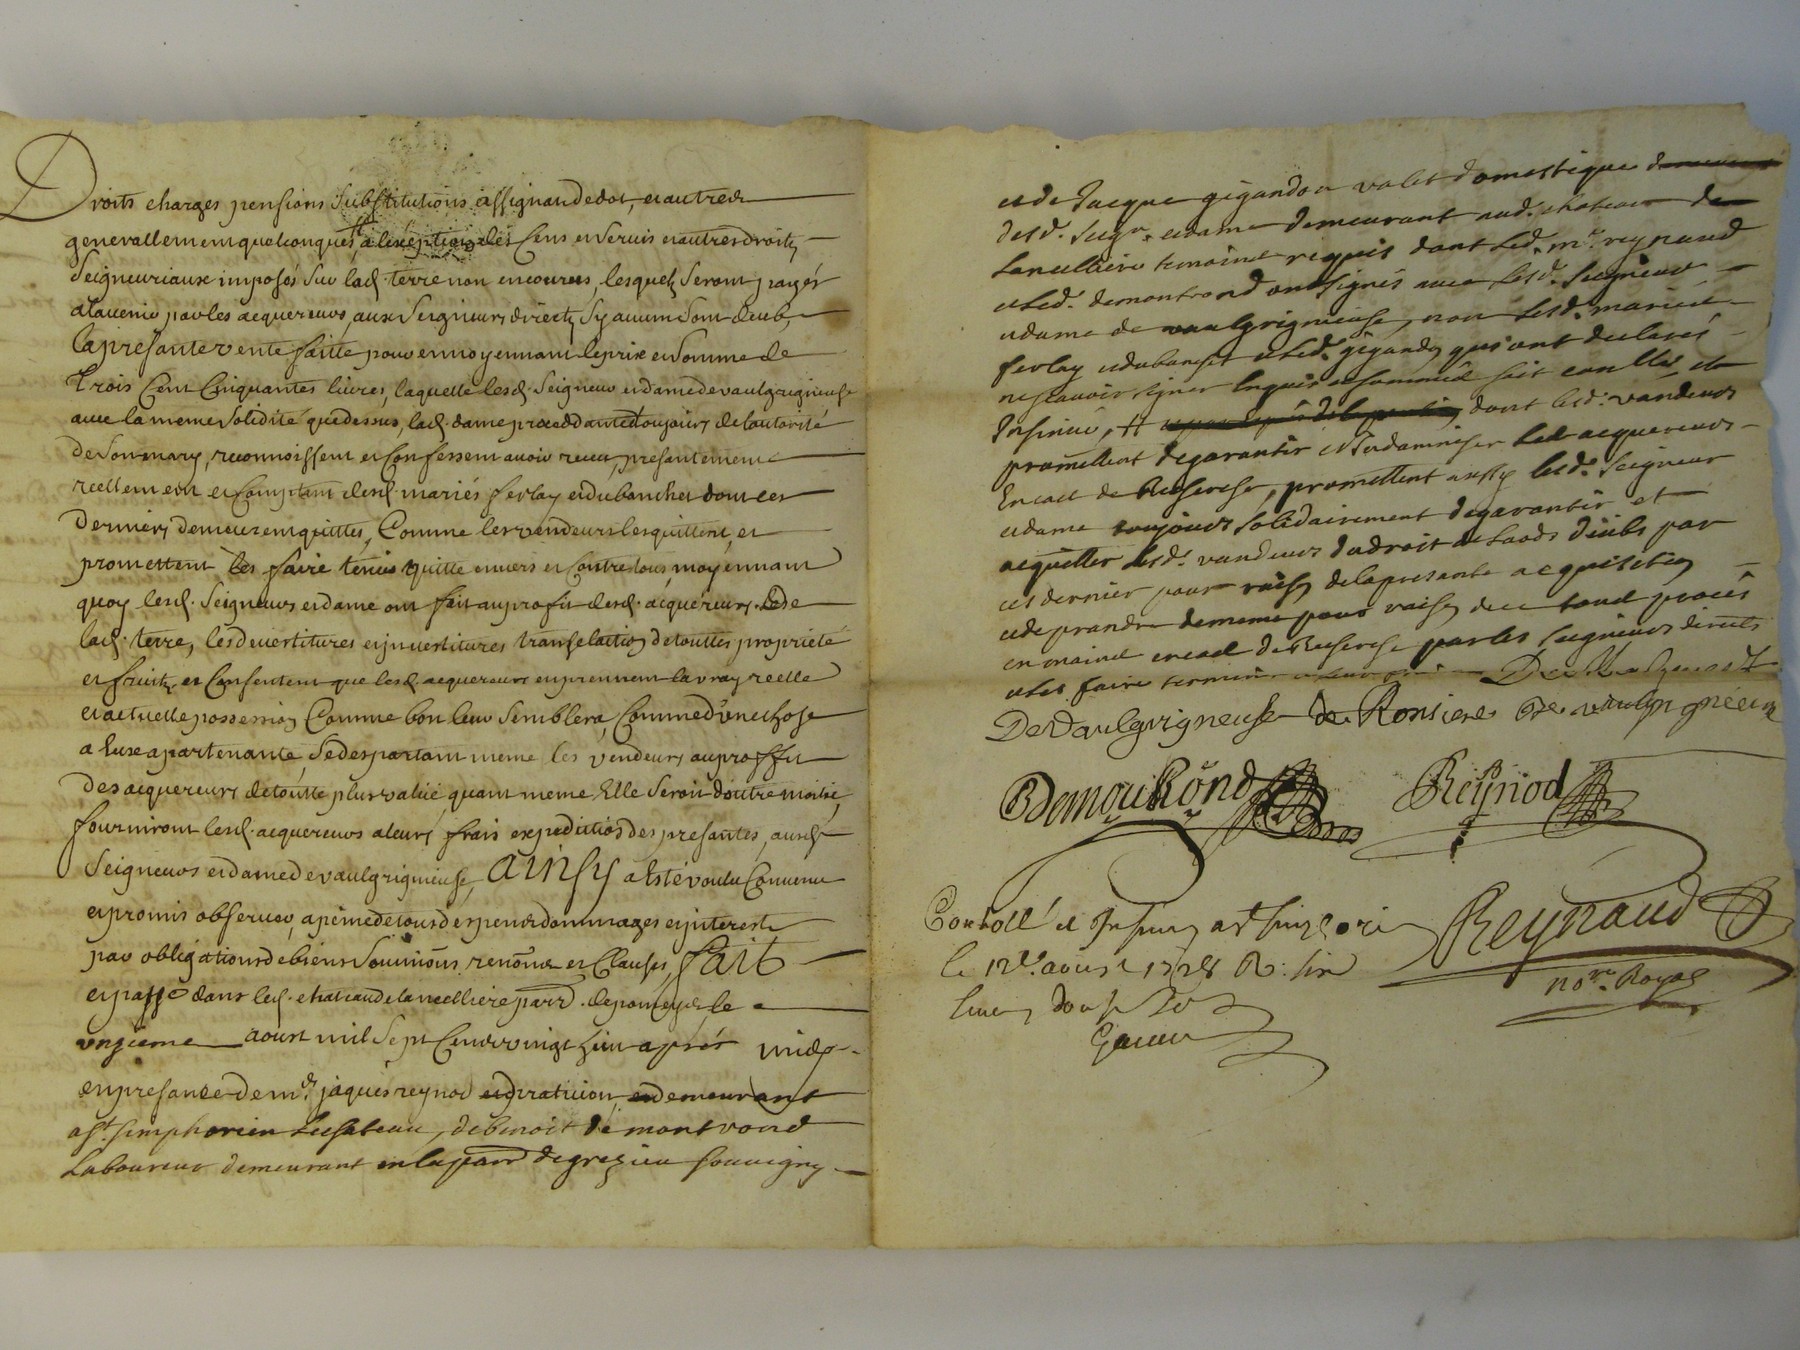 Droits charges pensions substitutions assignau de dot, et autres
generallement quelconques, a l'exception des Cens et servis et autres droits
Seigneuriaux imposés sur lad. terre non encourus, lesquels seront payés
a l'avenir par les acquereurs, aux Seigneurs directs sy aucun sont deub,
la presante vente faitte pour en moyennant le prix et somme de
trois Cent Cinquantes livres, laquelle lesd. Seigneur et dame de vaulgrigneuse
avec la meme solidité que dessus, lad. dame proceddante toujours de l'autorité
de son mary, reconnoissent et Confessent avoir receu, presantement
reellement et Comptant desd. mariés ferlay et dubanchet dont ces
derniers demeurent quittes, Comme les vendeurs les quittent, et
promettent les faire tenir quitte envers et Contre tous, moyennant
quoy lesd. Seigneurs et dame ont fait au proffit desd. acquereurs de
lad. terre, les devestitures et investitures translation de touttes proprieté
et fruits, et Consentent que lesd. acquereurs en prennent la vray reelle
et actuelle possession Comme bon leur semblera, Comme d'une chose
a luxe apartenante, se despartant meme les vendeurs au proffit
des acquereurs de toutte plus valüe quant meme Elle seroit d'outre moitié,
fourniront lesd. acquereurs a leurs frais expedition des presantes, ausd.
Seigneurs et dame de vaulgrigneuse, ainsy a esté voulu Convenu
et promis observer, a peine de tous despens dommages et interest
par obligations de biens soumions renons et Clauses, fait
et passé dans led. chateau de lancelliere parr. de pomeys, le
unzieme aoust mil sept Cent vingt huit aprés midy
en presance de mr. jaques reynod praticien, demeurant
a st. simphorien le chateau, de benoit de montrond
laboureur demeurant en la parr de grezieu souvigny
et de Jacque gigandon valet domestique
desd. seigr. et dame demeurant aud. chateau de
lancelliere temoins requis dont led. mr. reynaud
et led. demontrond ont signés avec lesd. seigneur
et dame de vaulgrigneuse, non lesd. mariés
ferlay et dubanchet et led. gigandon qui ont declarés
ne scavoir signer Enquis et sommés soit Contllé, et
Insinué, dont lesd. vandeurs
promettent degarantir et Indamniser led acquereurs
En cas de Recherche, promettent aussy lesd. seigneur
et dame toujours solidairement degarantir et
acquitter lesd. vandeurs du droit de Laods deubs par
ces dernier pour raison de la presante acquisition
et de prandre de meme pour raison de ce tout procés
en mains en cas de Recherche par les seigneurs directs
et les faire terminer
De Vaulgrigneuse de Ronsiere De vaulgrigneuse
B demontRond Reynod
Contollé et Insinué a st simphorien
le 12e. aoust 1728 R:
livres
Reynaud
nore. Royal